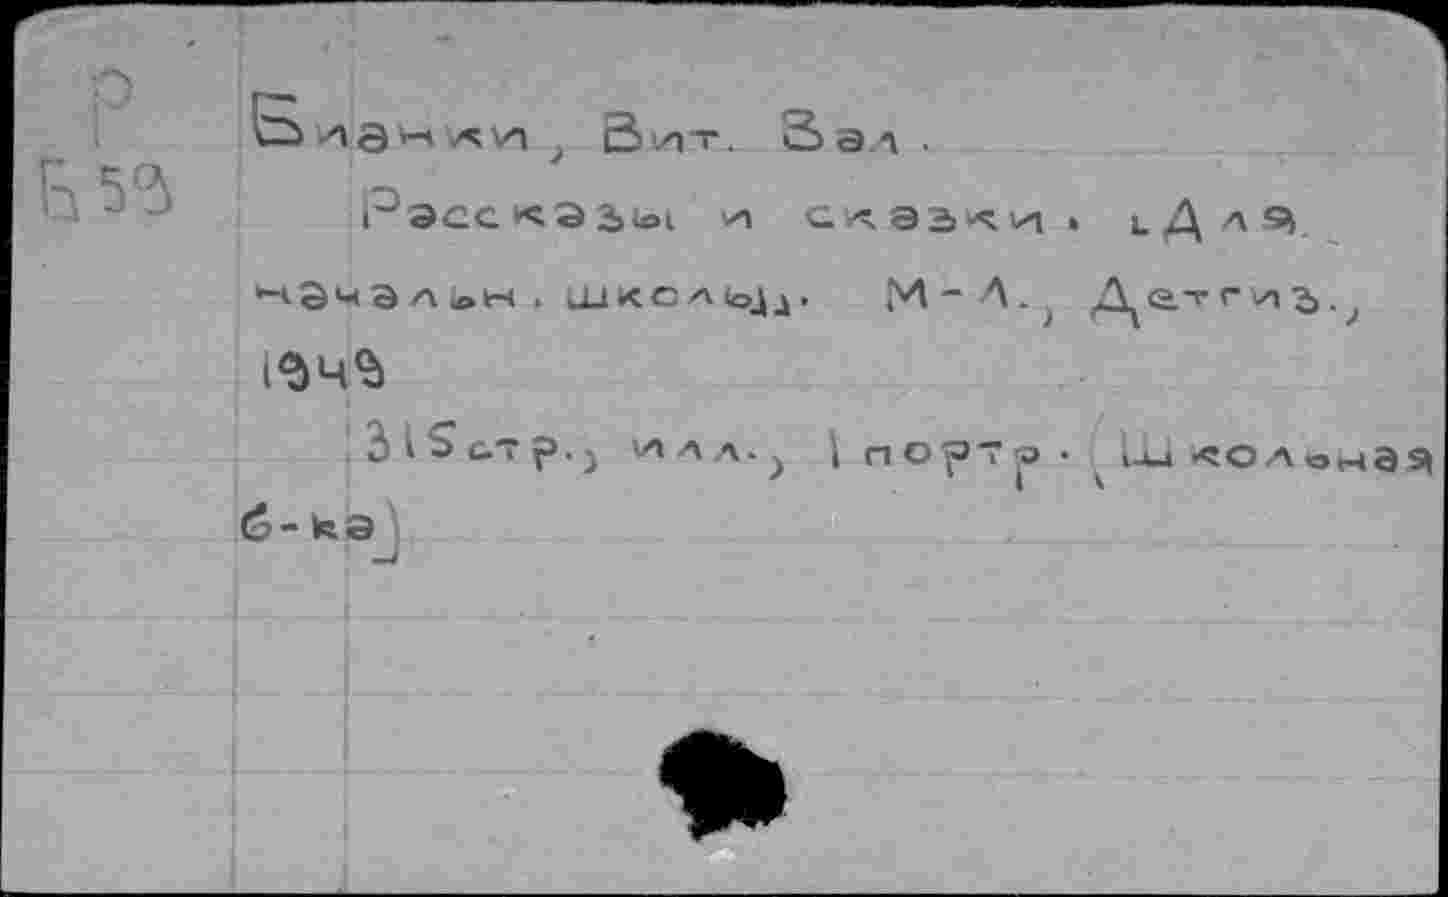 Р
Б 59
Бианки, Вит. Вал.
Рассказы и сказки. [Для
начальн. школы]. М-Л., Детгиз.,
1949
315 стр., илл., 1 портр. (Школьная
б-ка)